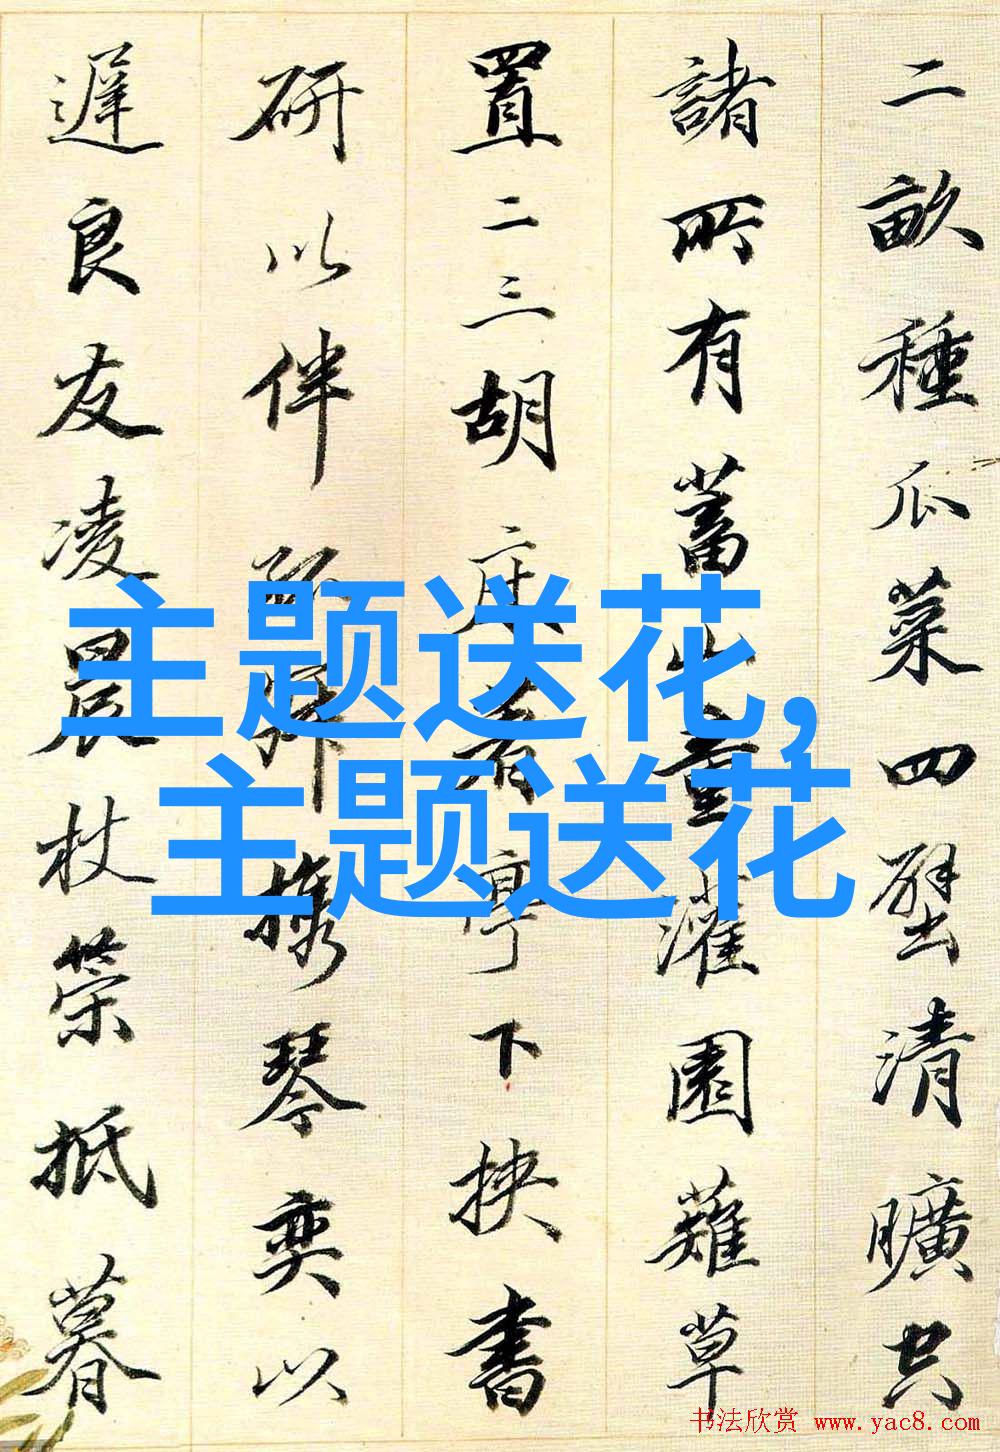 二畝種瓜菜四壁清曠空
諸所有蓄山童灌園薙草
置二三胡床著亭下挾書
研以伴孤寂攜琴奕以
遲良友凌晨杖策抵暮
主题送花,
主题送花
书法欣赏 www.yac8.com